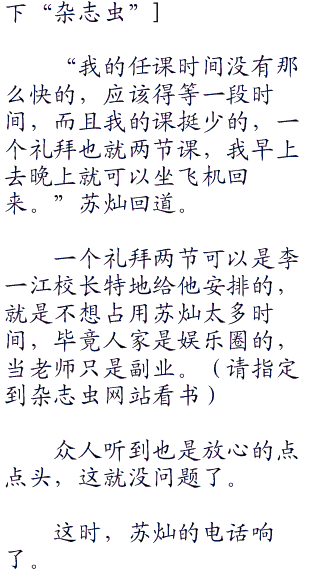 下“杂志虫”]
“我的任课时间没有那
么快的，应该得等一段时
间，而且我的课挺少的，一
个礼拜也就两节课，我早上
去晚上就可以坐飞机回
来。”苏灿回道。
一个礼拜两节可以是李
一江校长特地给他安排的，
就是不想占用苏灿太多时
间，毕竟人家是娱乐圈的，
当老师只是副业。（请指定
到杂志虫网站看书）
众人听到也是放心的点
点头，这就没问题了。
这时，苏灿的电话响
了。